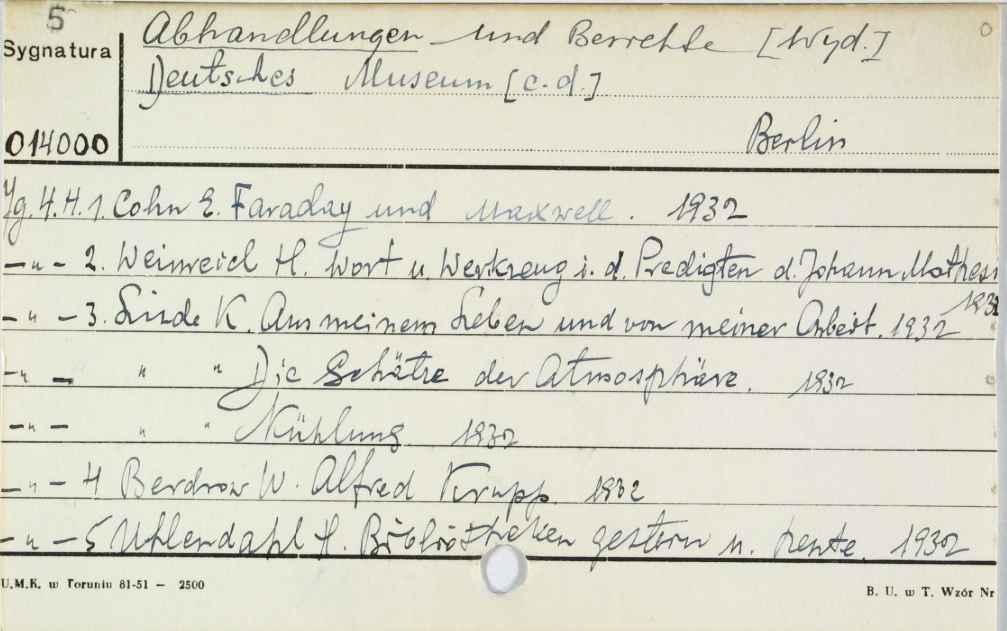 5
Sygnatura
014000
Abhandlungen und Berichte [Wyd.]
Deutsches Museum [c.d.]
Berlin
Jg. 4. H. 1. Cohn E. Faraday und Maxwell. 1932
— „ — 2. Weinreich H. Wort u. Werkzeug i. d. Predigten d. Johann Mathesi
1932
— „ — 3. Linde K. Aus meinem Leben und von meiner Arbeit. 1932
— „ — „ „ Die Schätze der Atmosphäre. 1932
— „ — „ „ Kühlung 1932
— „ — 4 Berdrow W. Alfred Krupp. 1932
— „ — 5 Uhlendahl H. Bibliotheken gestern u. heute. 1932
U.M.K. w Toruniu 81-51 — 2500
B. U. w T. Wzór Nr